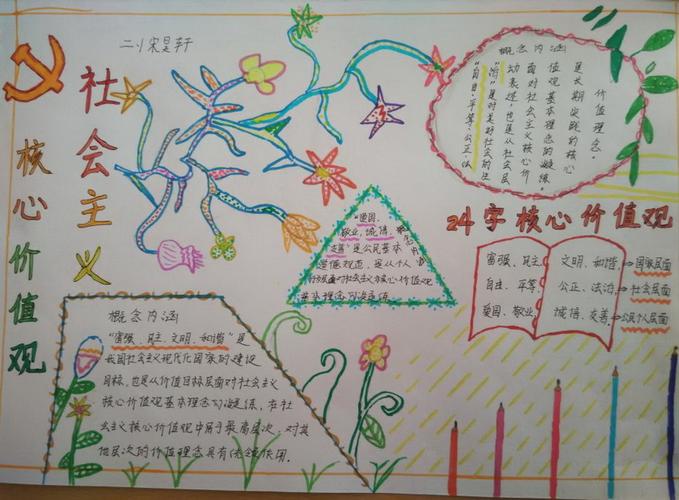 二小
社会主义
核心价值观
概念内涵
“自由、平等、公正、法
治”是对美好社会的生
动表述，也是从社会层
面对社会主义核心价
值观基本理念的凝练。
是长期实践的核心
价值理念。
概念内涵
“爱国、
敬业、诚信、
友善”是公民基本
道德规范，是从个人
行为层面对社会主义核心价值观
基本理念的凝练
24字核心价值观
富强、民主、文明、和谐→国家层面
自由、平等、公正、法治→社会层面
爱国、敬业、诚信、友善→公民个人层面
概念内涵
“富强、民主、文明、和谐”是
我国社会主义现代化国家的建设
目标，也是从价值目标层面对社会主义
核心价值观基本理念的凝练，在社
会主义核心价值观中居于最高层次，对其
他层次的价值理念具有统领作用。